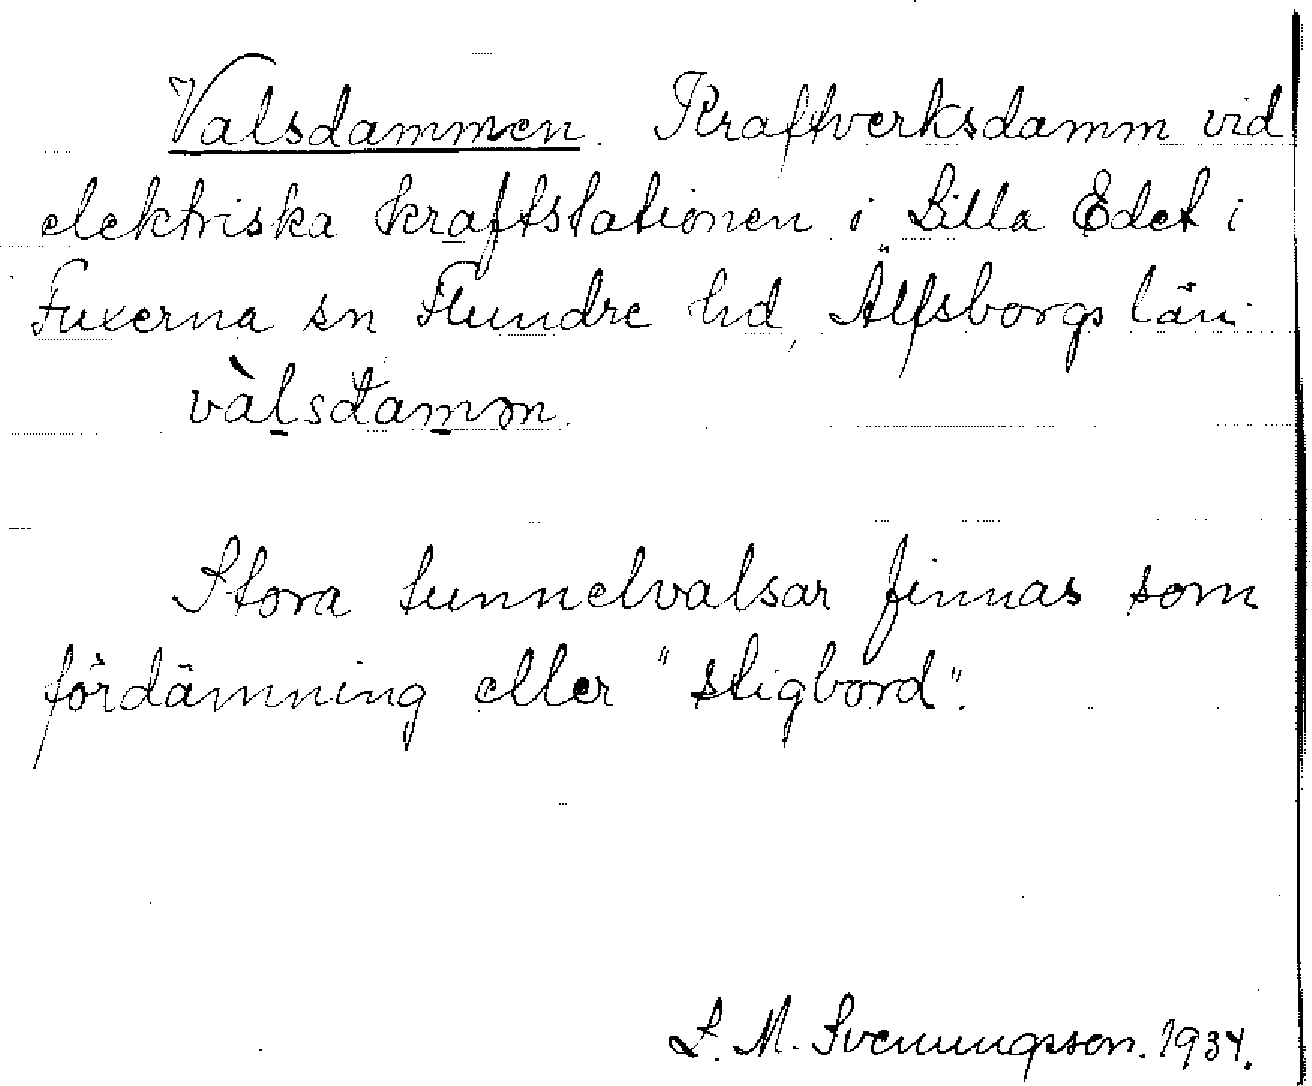 Valsdammen. Kraftverksdamm vid
elektriska kraftstationen i Lilla Edet i
Fuxerna sn Flundre hd, Älfsborgs län.
vàlsdamən.
Stora tunnelvalsar finnas som
fördämning eller "stigbord".
L. M. Svenungsson. 1934.